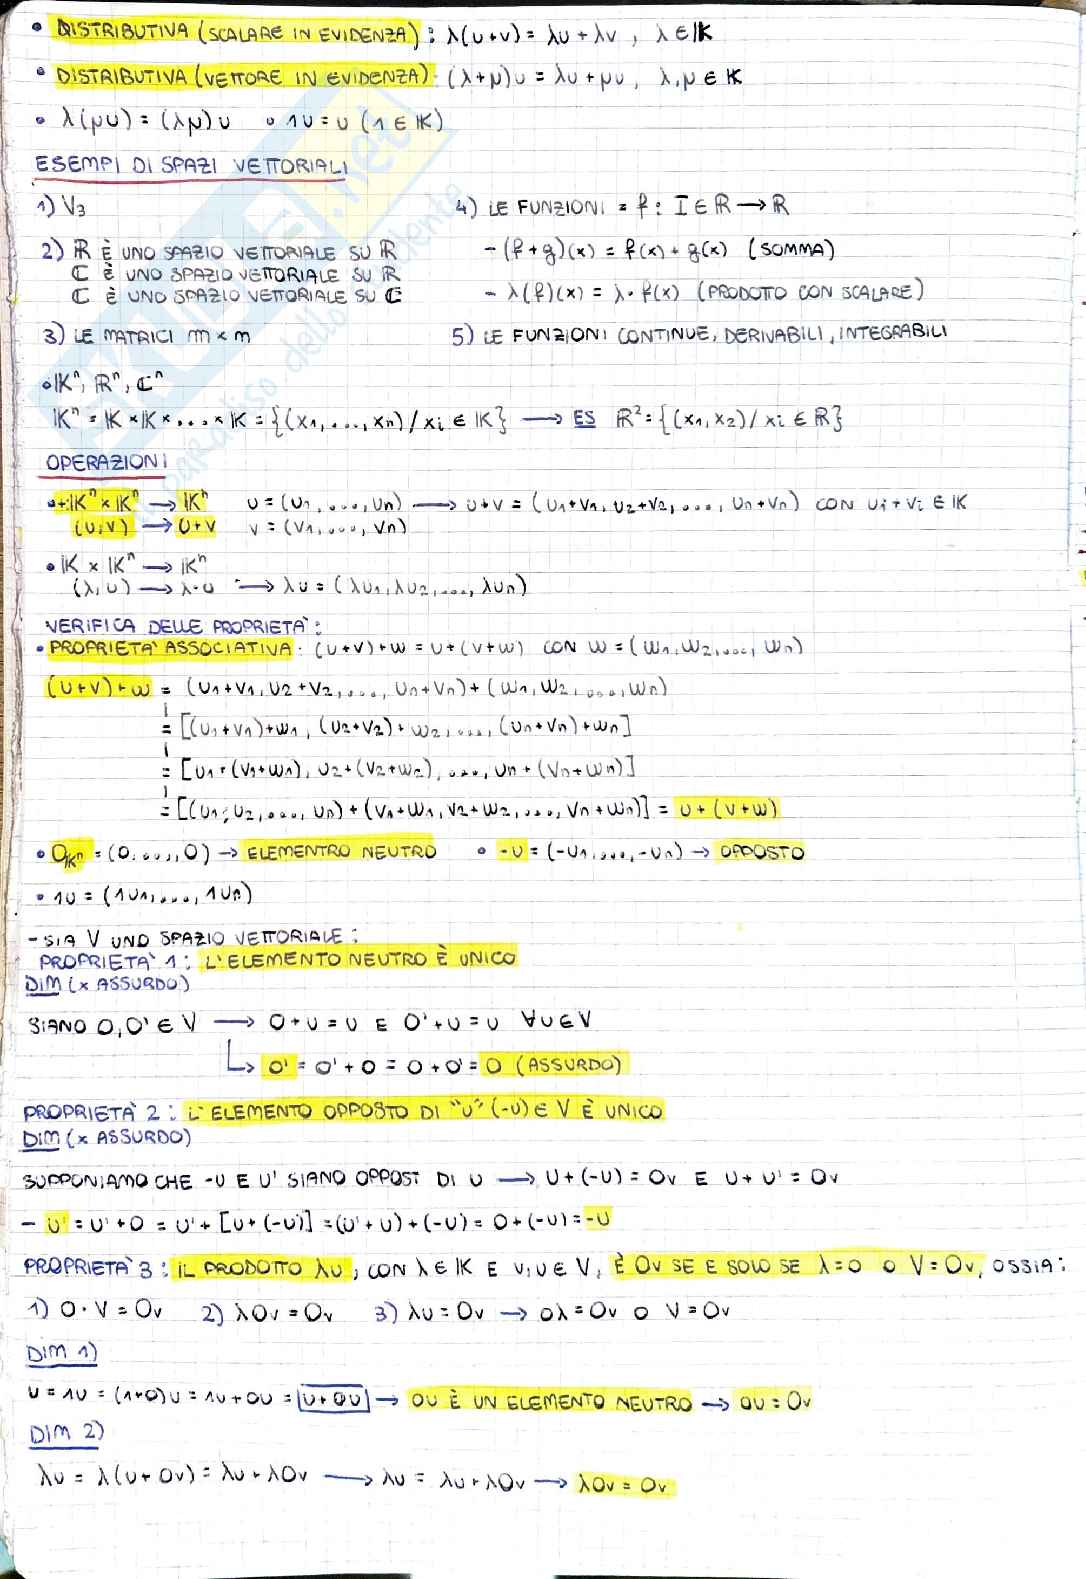 • DISTRIBUTIVA (SCALARE IN EVIDENZA): λ(u+v) = λu + λv , λ ∈ K
• DISTRIBUTIVA (VETTORE IN EVIDENZA): (λ+μ)u = λu + μu, λ,μ ∈ K
• λ(μu) = (λμ)u • 1u = u (1 ∈ K)
ESEMPI DI SPAZI VETTORIALI
1) V3
2) R È UNO SPAZIO VETTORIALE SU R
C È UNO SPAZIO VETTORIALE SU R
C È UNO SPAZIO VETTORIALE SU C
3) LE MATRICI m×m
4) LE FUNZIONI = f: I ∈ R → R
- (f+g)(x) = f(x) + g(x) (SOMMA)
- λ(f)(x) = λ • f(x) (PRODOTTO CON SCALARE)
5) LE FUNZIONI CONTINUE, DERIVABILI, INTEGRABILI
• Kⁿ, Rⁿ, Cⁿ
Kⁿ = K×K×...×K = {(x1,...,xn) / xi ∈ K} → ES R² = {(x1,x2) / xi ∈ R}
OPERAZIONI
• +: Kⁿ × Kⁿ → Kⁿ u = (u1,...,un) → u+v = (u1+v1, u2+v2,..., un+vn) CON ui+vi ∈ K
(u,v) → u+v v = (v1,...,vn)
• K × Kⁿ → Kⁿ
(λ,u) → λ•u → λu = (λu1, λu2,..., λun)
VERIFICA DELLE PROPRIETA':
• PROPRIETA' ASSOCIATIVA: (u+v)+w = u+(v+w) CON w = (w1,w2,..., wn)
(u+v)+w = (u1+v1, u2+v2,..., un+vn) + (w1,w2,...,wn)
= [(u1+v1)+w1, (u2+v2)+w2,..., (un+vn)+wn]
= [u1+(v1+w1), u2+(v2+w2),..., un+(vn+wn)]
= [(u1,u2,..., un) + (v1+w1, v2+w2,..., vn+wn)] = u+(v+w)
• 0Kⁿ = (0,...,0) → ELEMENTRO NEUTRO • -u = (-u1,...,-un) → OPPOSTO
• 1u = (1u1,..., 1un)
- SIA V UNO SPAZIO VETTORIALE:
PROPRIETA' 1: L'ELEMENTO NEUTRO È UNICO
DIM (x ASSURDO)
SIANO 0,0' ∈ V → 0+u = u E 0'+u = u ∀u∈V
↳ 0' = 0'+0 = 0+0' = 0 (ASSURDO)
PROPRIETA' 2: L'ELEMENTO OPPOSTO DI "u" (-u) ∈ V È UNICO
DIM (x ASSURDO)
SUPPONIAMO CHE -u E u' SIANO OPPOST DI u → u+(-u) = 0v E u+u' = 0v
- u' = u'+0 = u'+[u+(-u)] = (u'+u)+(-u) = 0+(-u) = -u
PROPRIETA' 3: IL PRODOTTO λu, CON λ∈K E v,u∈V, È 0v SE E SOLO SE λ=0 O V=0v, OSSIA:
1) 0•V = 0v 2) λ0v = 0v 3) λu = 0v → 0λ = 0v O V = 0v
DIM 1)
u = 1u = (1+0)u = 1u+0u = u+0u → 0u È UN ELEMENTO NEUTRO → 0u = 0v
DIM 2)
λu = λ(u+0v) = λu+λ0v → λu = λu+λ0v → λ0v = 0v